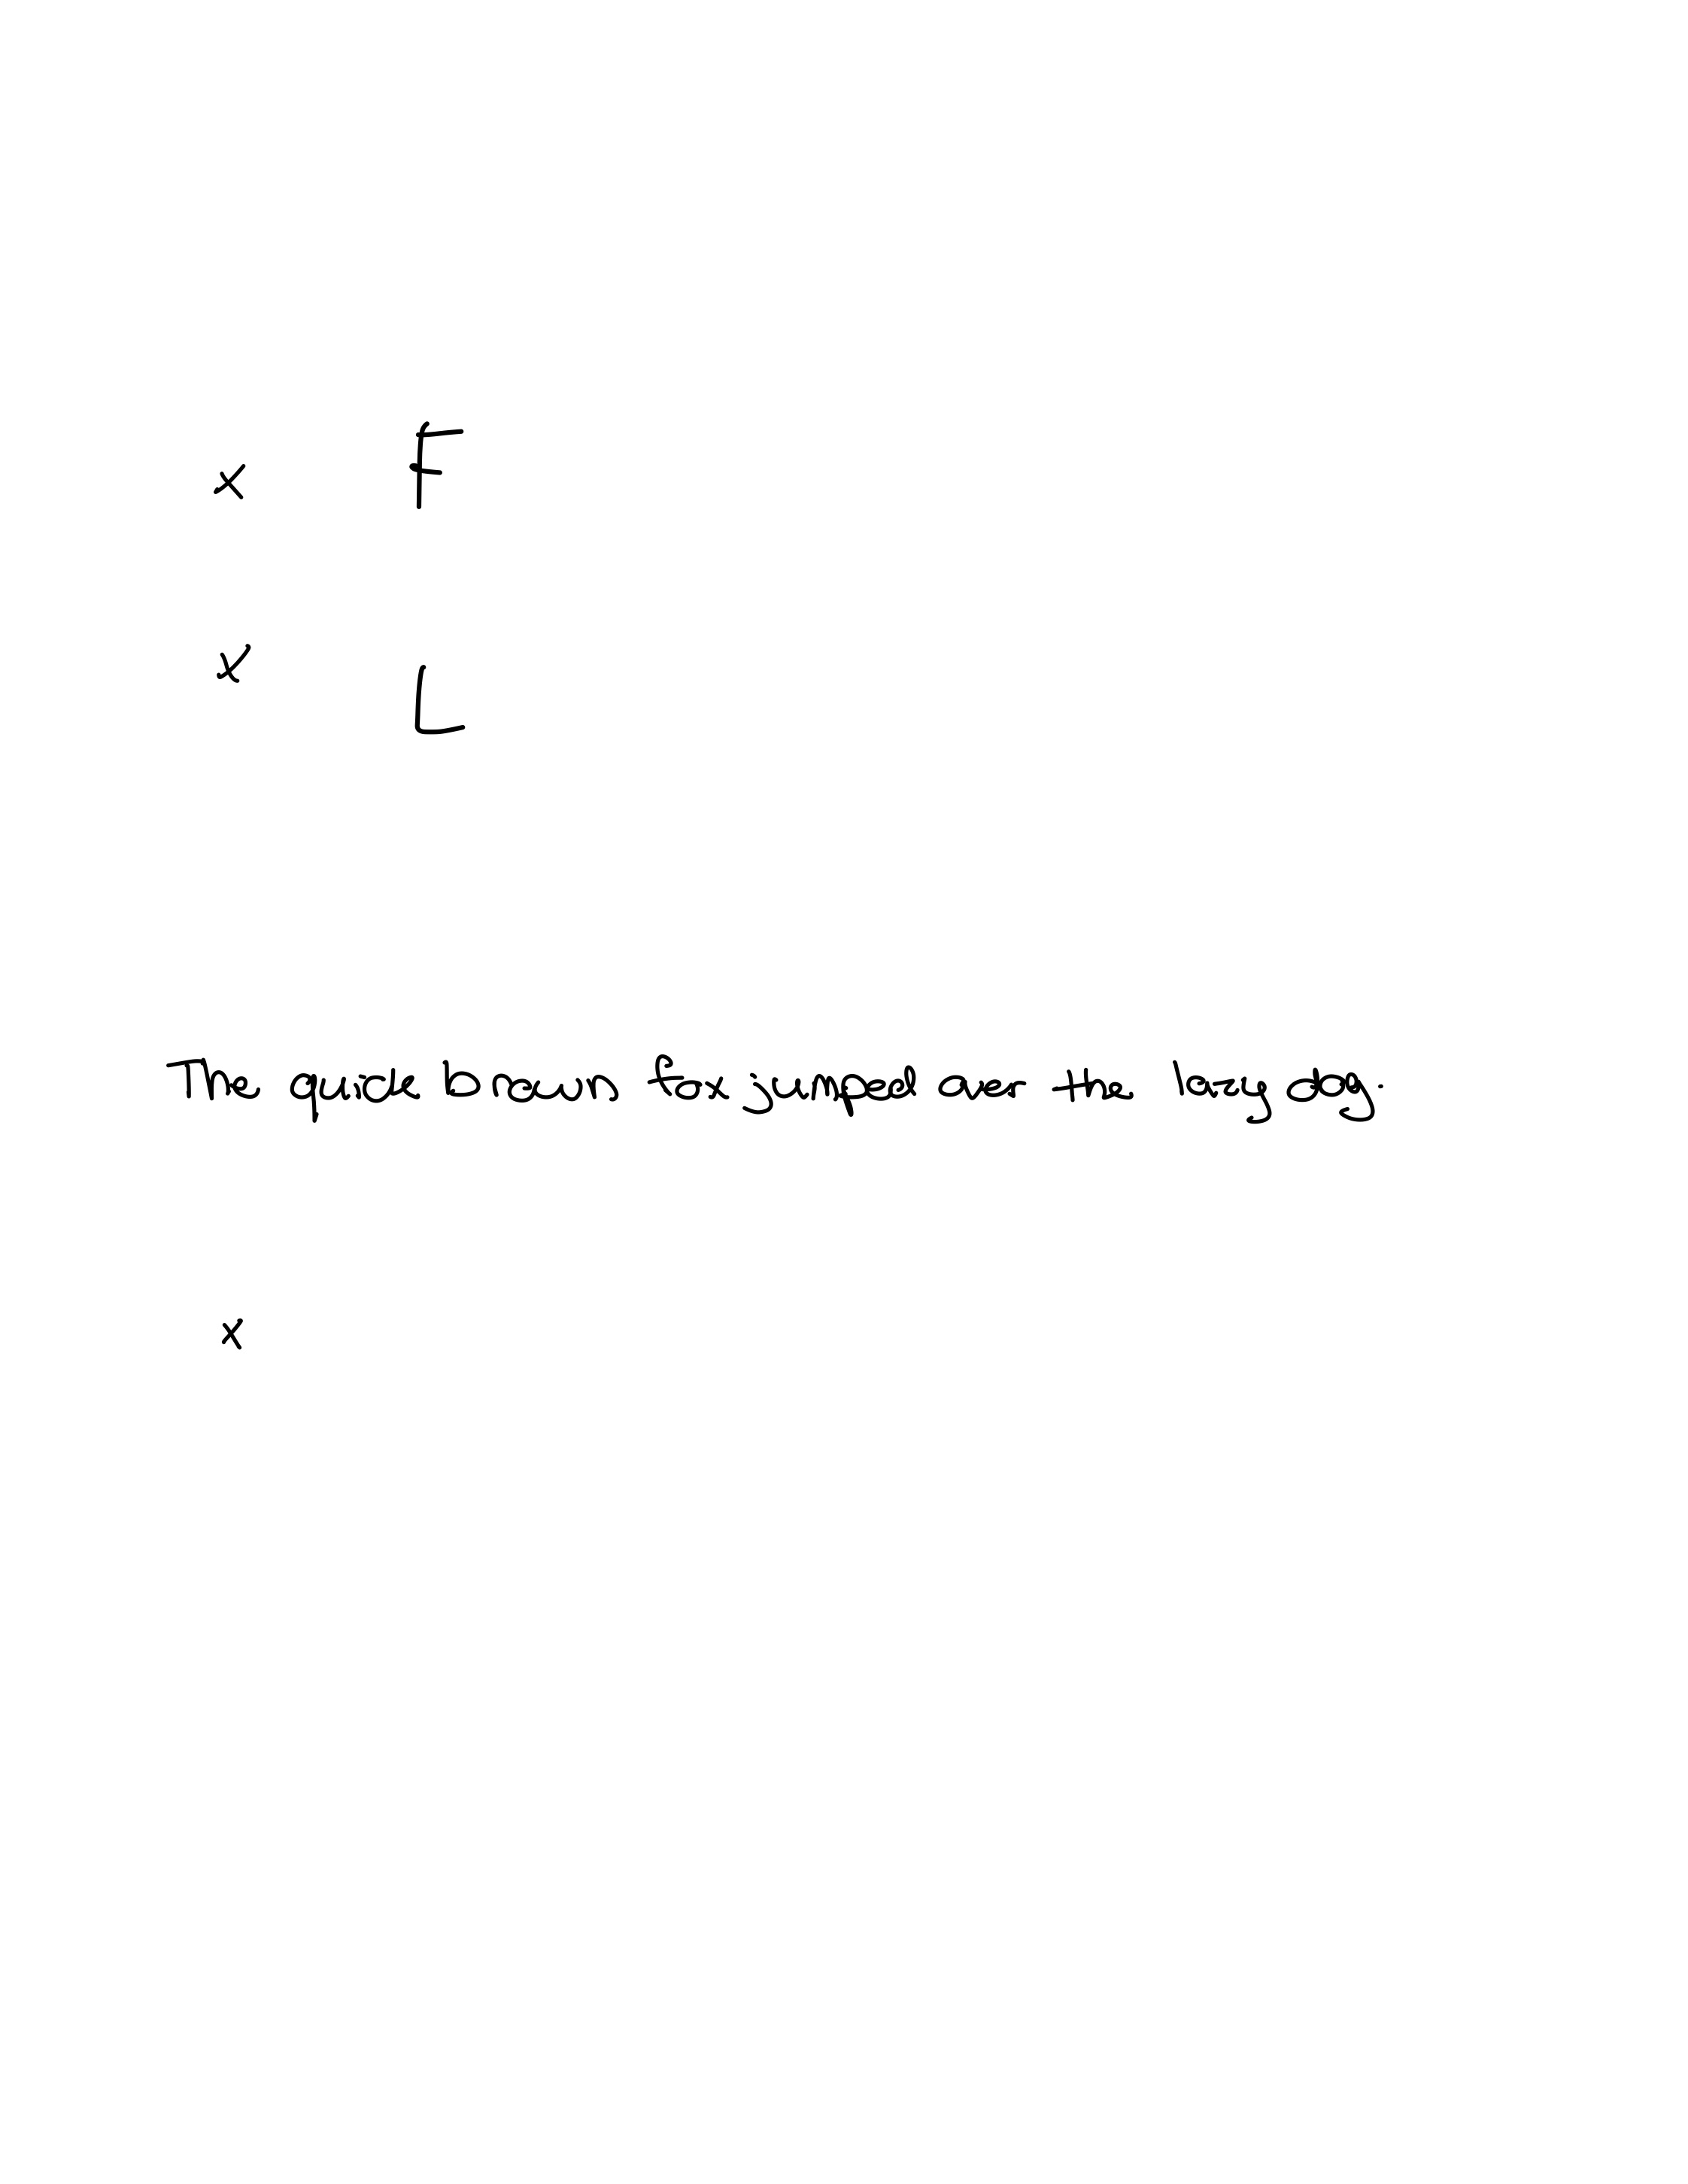 x F
x L
The quick brown fox jumped over the lazy dog.
x